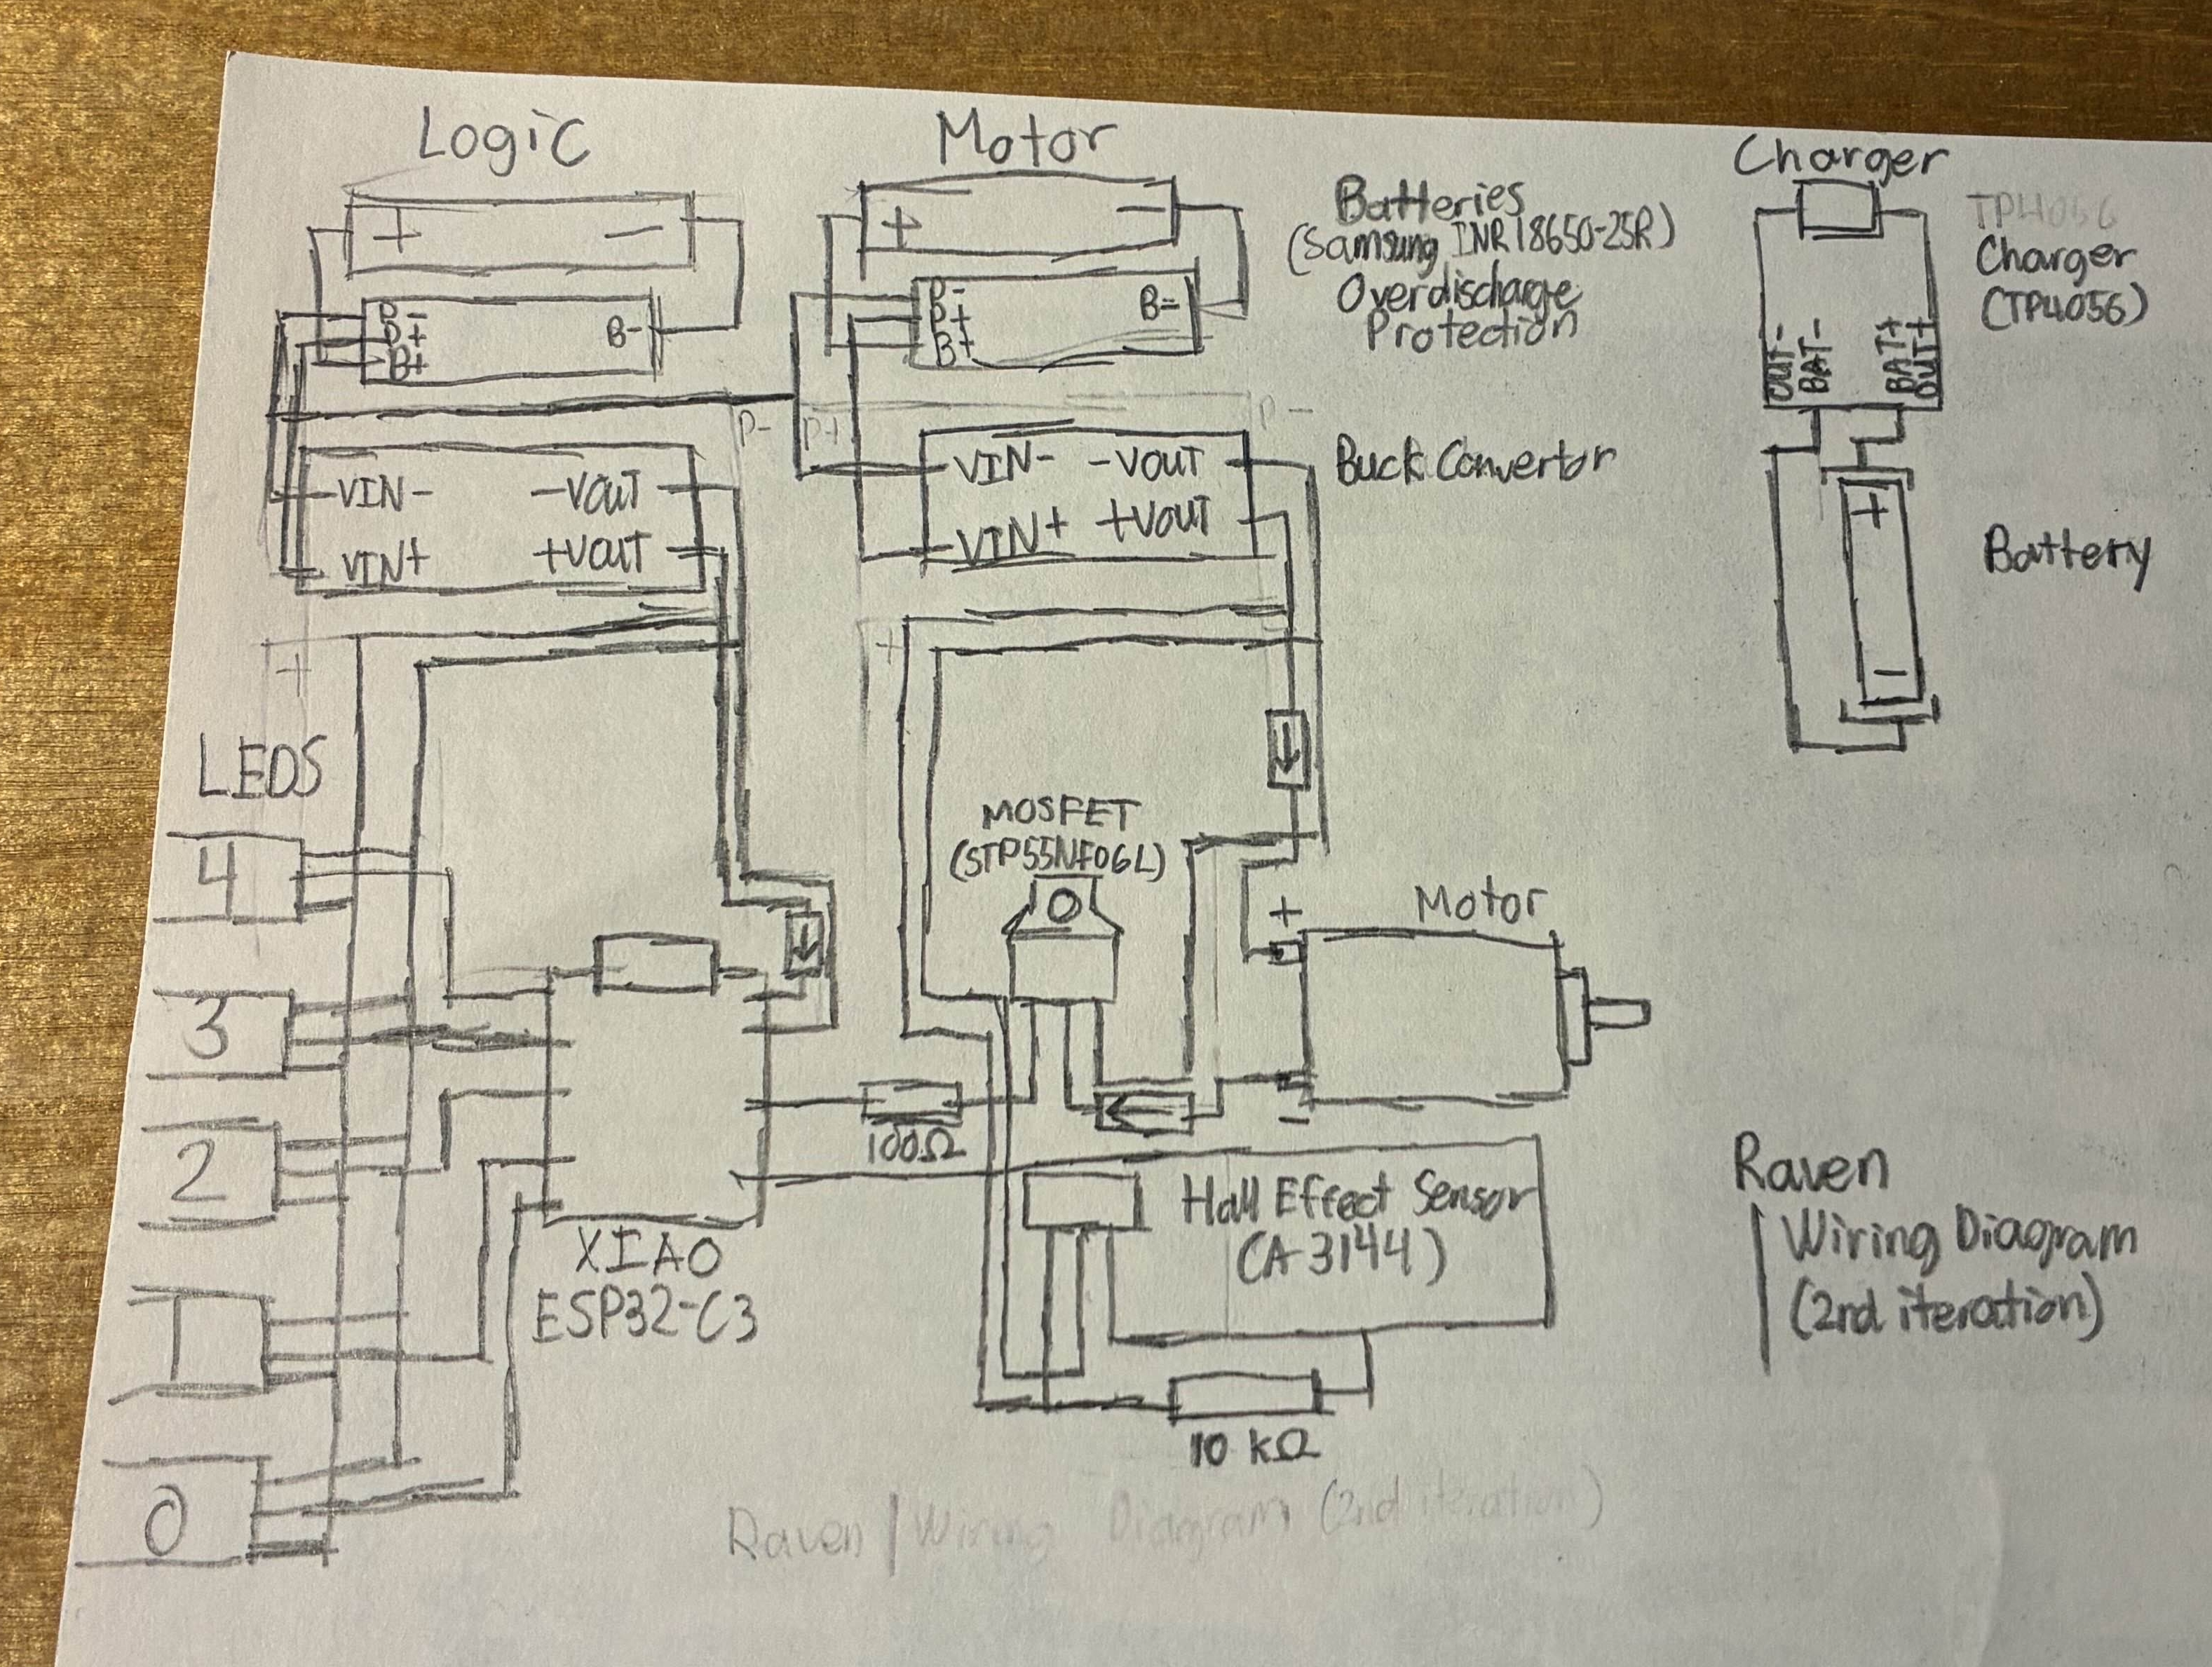 Logic
Motor
Charger
+ -
+ -
Batteries
(Samsung INR18650-25R)
Overdischarge
Protection
TP4056
Charger
(TP4056)
P-
P+
B+
B-
P-
P+
B+
B-
OUT-
BAT-
BAT+
OUT+
P-
P+
P-
VIN- -VOUT
VIN+ +VOUT
VIN- -VOUT
VIN+ +VOUT
Buck Convertor
+
-
Battery
+
+
LEDS
4
3
2
1
0
MOSFET
(STP55NF06L)
O
+
-
Motor
100Ω
XIAO
ESP32-C3
Hall Effect Sensor
(A-3144)
10 kΩ
Raven
Wiring Diagram
(2nd iteration)
Raven | Wiring Diagram (2nd iteration)